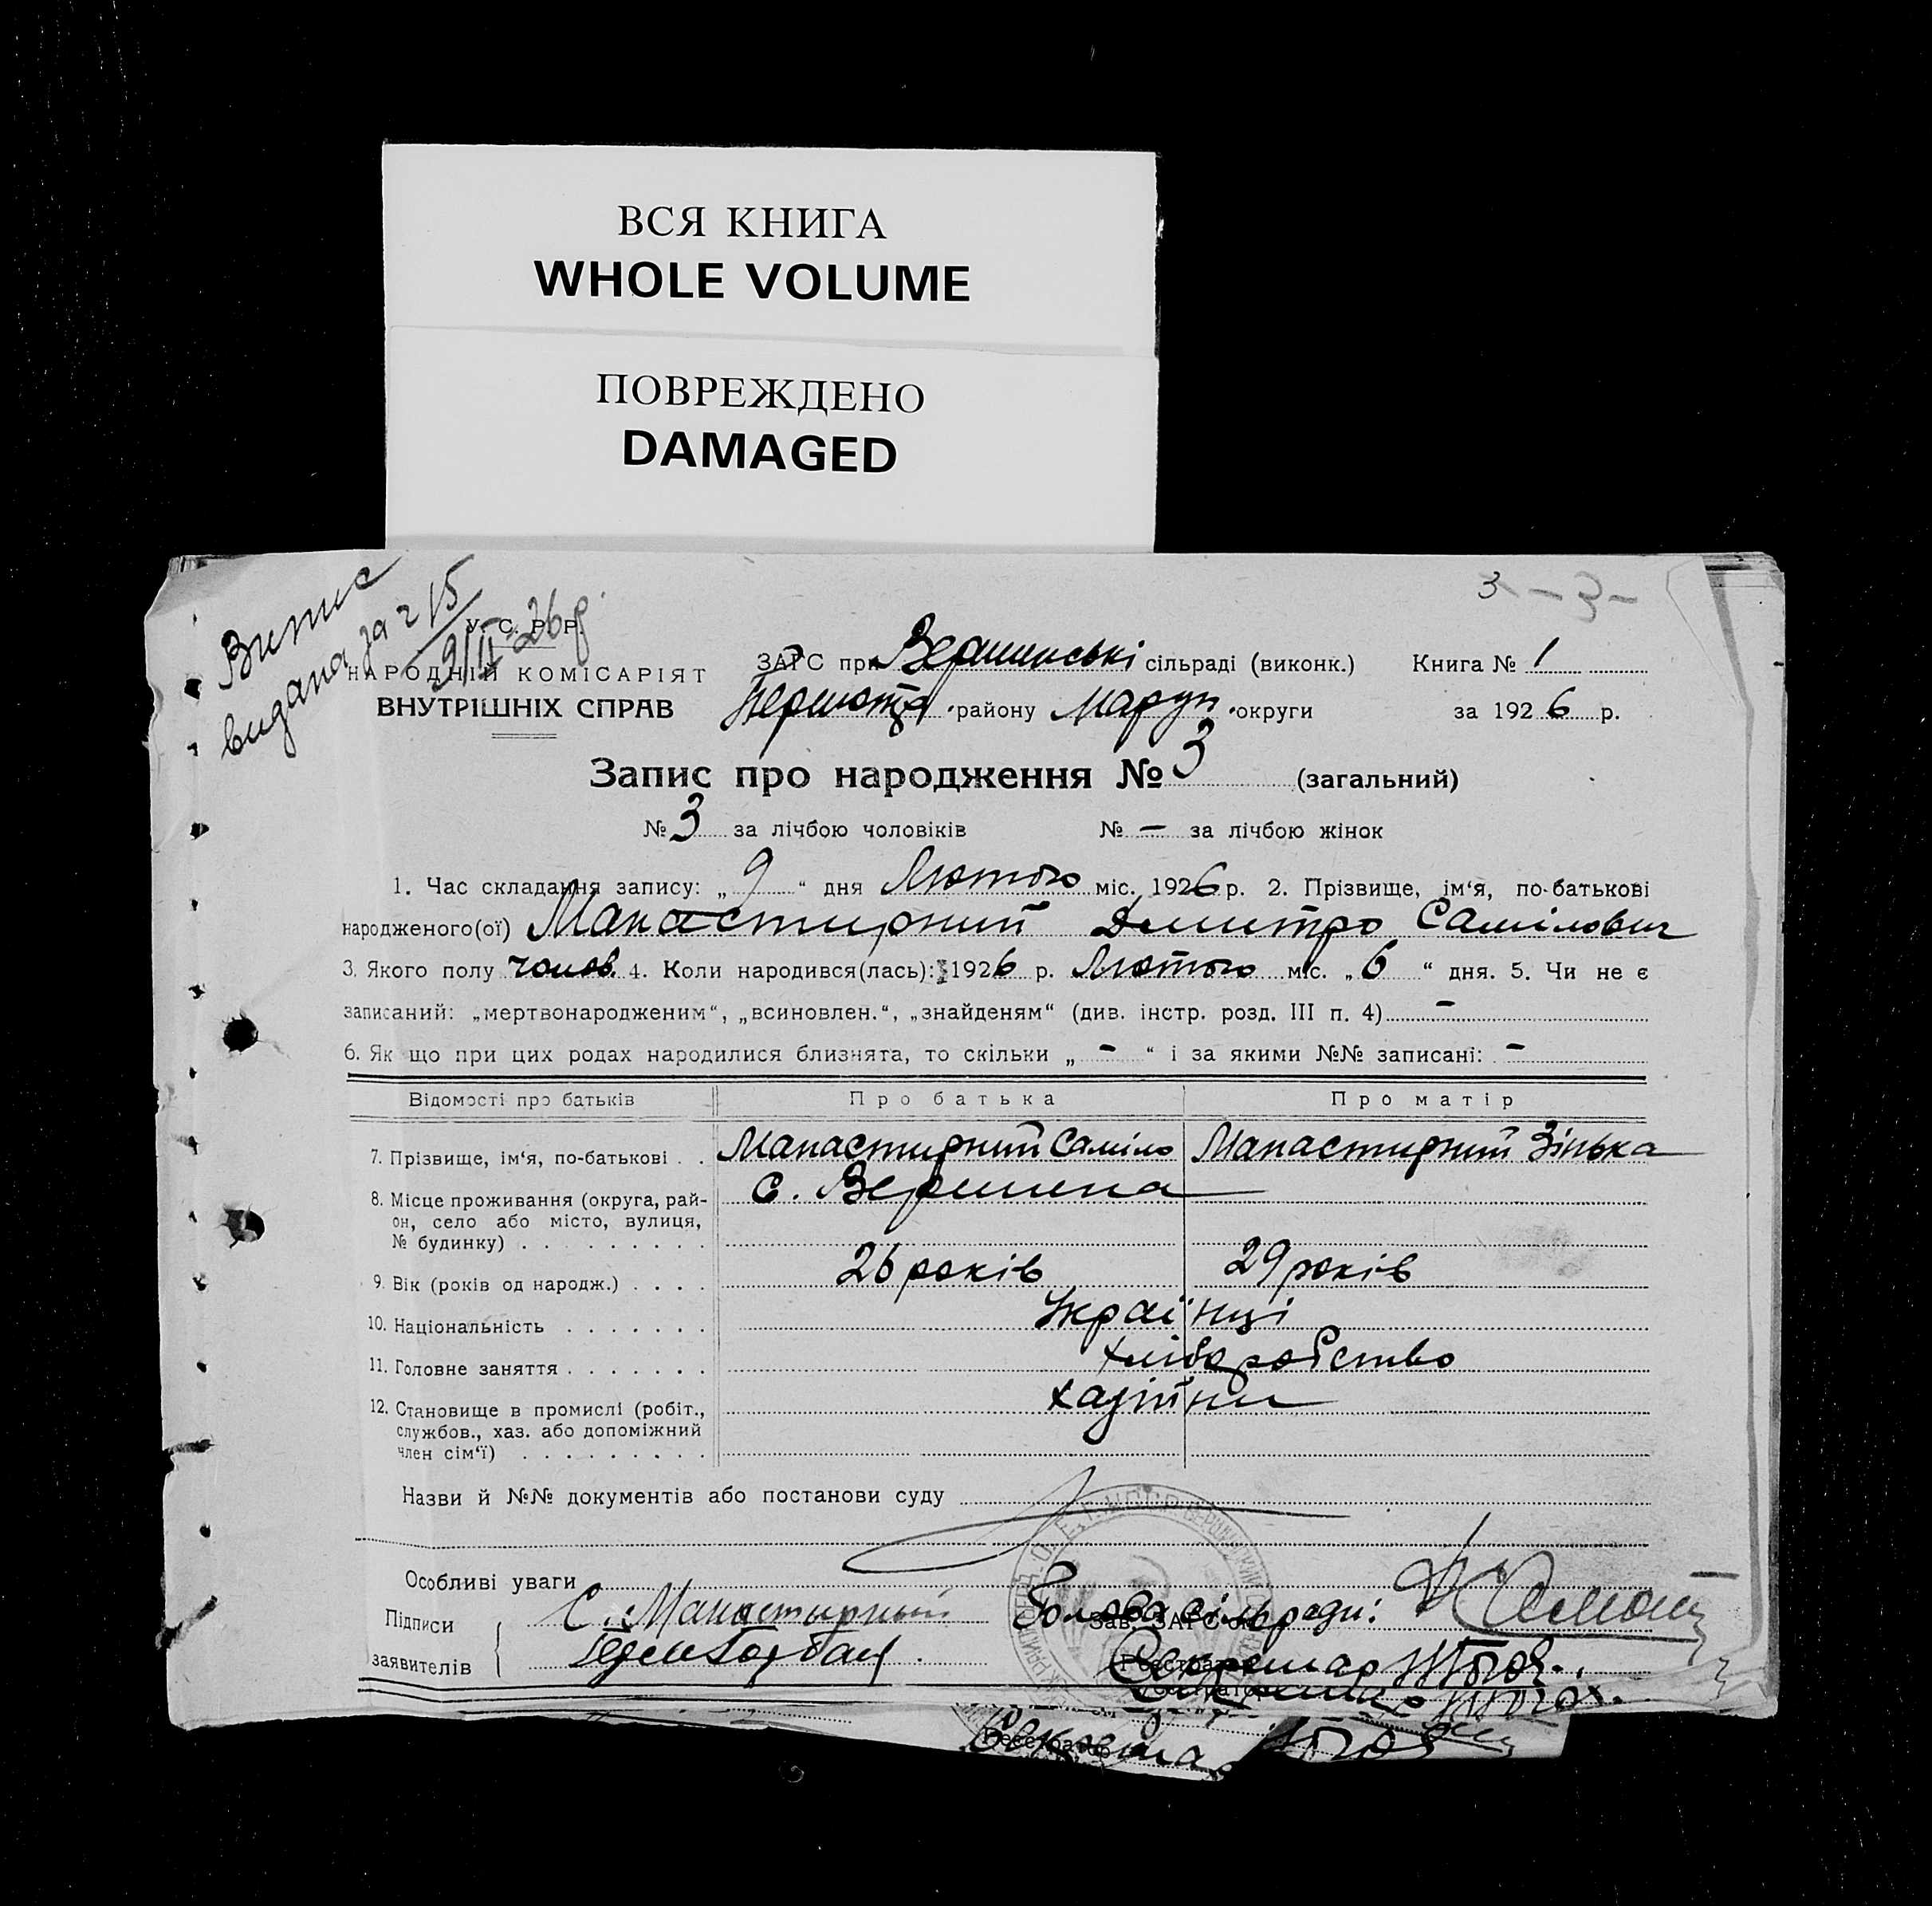 ВСЯ КНИГА
WHOLE VOLUME
ПОВРЕЖДЕНО
DAMAGED
3 -3-
Витис
видана за г 15
9/II-26р.
У. С. Р. Р.
НАРОДНІЙ КОМІСАРІЯТ
ВНУТРІШНІХ СПРАВ
ЗАГС при Вершинські сільраді (виконк.) Книга № 1
району Маруп. округи за 1926 р.
Запис про народження № 3 (загальний)
№ 3 за лічбою чоловіків № — за лічбою жінок
1. Час складання запису: „9“ дня Лютого міс. 1926 р. 2. Прізвище, ім‘я, по-батькові
народженого(ої) Манастирний Дмитро Самілович
3. Якого полу чолов. 4. Коли народився(лась): 1926 р. Лютого міс. „6“ дня. 5. Чи не є
записаний: „мертвонародженим“, „всиновлен.“, „знайденям“ (див. інстр. розд. III п. 4) —
6. Як що при цих родах народилися близнята, то скільки „ — “ і за якими №№ записані: —
Відомості про батьків Про батька Про матір
7. Прізвище, ім‘я, по-батькові . . Манастирний Саміло Манастирний Зінька
8. Місце проживання (округа, рай-
он, село або місто, вулиця,
№ будинку) . . . . . . . . . с. Вершина
9. Вік (років од народж.) . . . . 26 років 29 років
10. Національність . . . . . . . Українці
11. Головне заняття . . . . . . . хліборобство
12. Становище в промислі (робіт.,
службов., хаз. або допоміжний
член сім‘ї) . . . . . . . . .
Назви й №№ документів або постанови суду
Особливі уваги
Підписи
заявителів
С. Манастирный
Голова сільради:
Зав. ЗАГС'ом
Секретар
Реєстратор
Секретар
Реєстратор